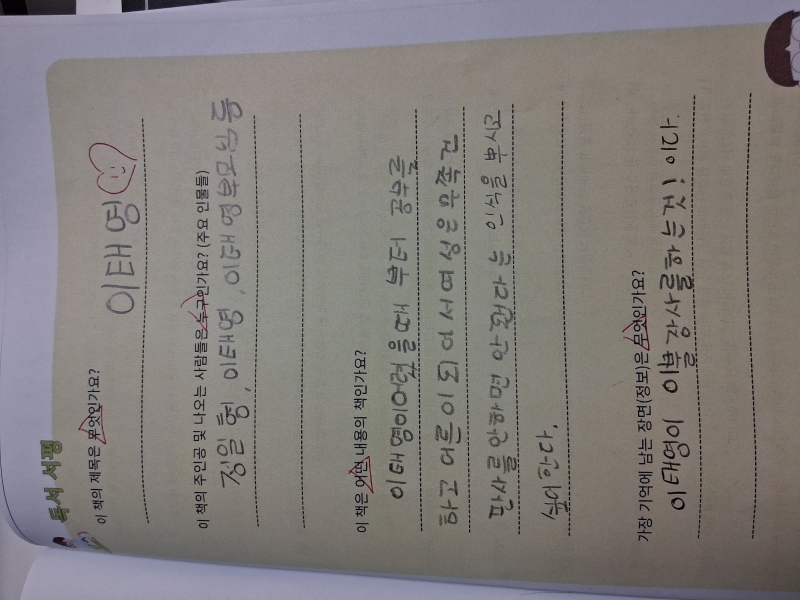 독서 서평
이 책의 제목은 무엇인가요?
이태영
이 책의 주인공 및 나오는 사람들은 누구인가요? (주요 인물들)
정일형, 이태영, 이태영부모님 등
이 책은 어떤 내용의 책인가요?
이태영이어렸을때 부터 공부를
하고 어른이되어서여성은무족건
살림을안하면 안 됀다는 인식을 부시고
한다.
가장 기억에 남는 장면(정보)은 무엇인가요?
이태영이 이불장사를하는 것 이다.